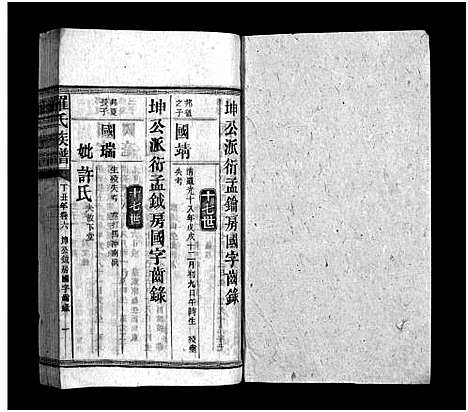 坤公派衍孟鑰房國字齒錄
十七世
邦值之子
國靖
清道光十八年戊戌十二月初九日午時生 歿葬失考
坤公派衍孟鉞房國字齒錄
十七世
國瑞
生歿失考
妣許氏
夫故下堂
羅氏族譜
丁丑年卷六 坤公鉞房國字齒錄 一